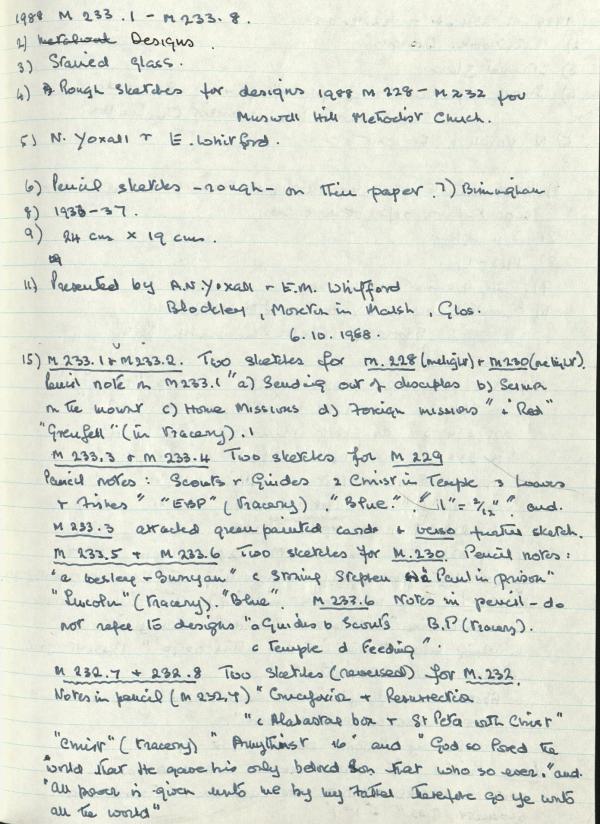 1988 M 233.1 - M 233.8.
2) Designs.
3) Stained Glass.
4) Rough sketches for designs 1988 M 228 - M232 for
Muswell Hill Methodist Church.
5) N. Yoxall + E. Whitford.
6) Pencil sketches - rough - on thin paper. 7) Birmingham
8) 1933-37.
9) 24 cms x 19 cms.
11) Presented by A.N. Yoxall + E.M. Whitford
Blockley, Moreton in Marsh, Glos.
6.10.1988.
15) M 233.1 + M 233.2. Two sketches for M.228 (melight) + M230 (melight).
Pencil note on M233.1 "a) Sending out of disciples b) Sermon
on the mount c) Home Missions d) Foreign missions" + "Red"
"Grenfell" (in tracery).
M 233.3 + M 233.4 Two sketches for M 229
Pencil notes: Scouts + Guides 2 Christ in Temple 3 Loaves
+ Fishes" "EBP" (tracery). "Blue". "1" = 3/12" and.
M 233.3 attached green painted card + verso further sketch.
M 233.5 + M 233.6 Two sketches for M.230. Pencil notes:
"a Wesley + Bunyan" c Stoning Stephen Paul in prison"
"Lincoln" (tracery). "Blue". M 233.6 Notes in pencil - do
not refer to designs "a Guides b Scouts B.P (tracery).
c Temple d Feeding".
M 232.7 + 232.8 Two sketches (reversed) for M.232.
Notes in pencil (M 232.7) "Crucifixion + Resurrection
"c Alabaster box + St Peter with Christ"
"Christ" (tracery) " 16" and "God so loved the
world that He gave his only beloved Son that who so ever." and.
"all power is given unto me by my Father Therefore go ye unto
all the world"